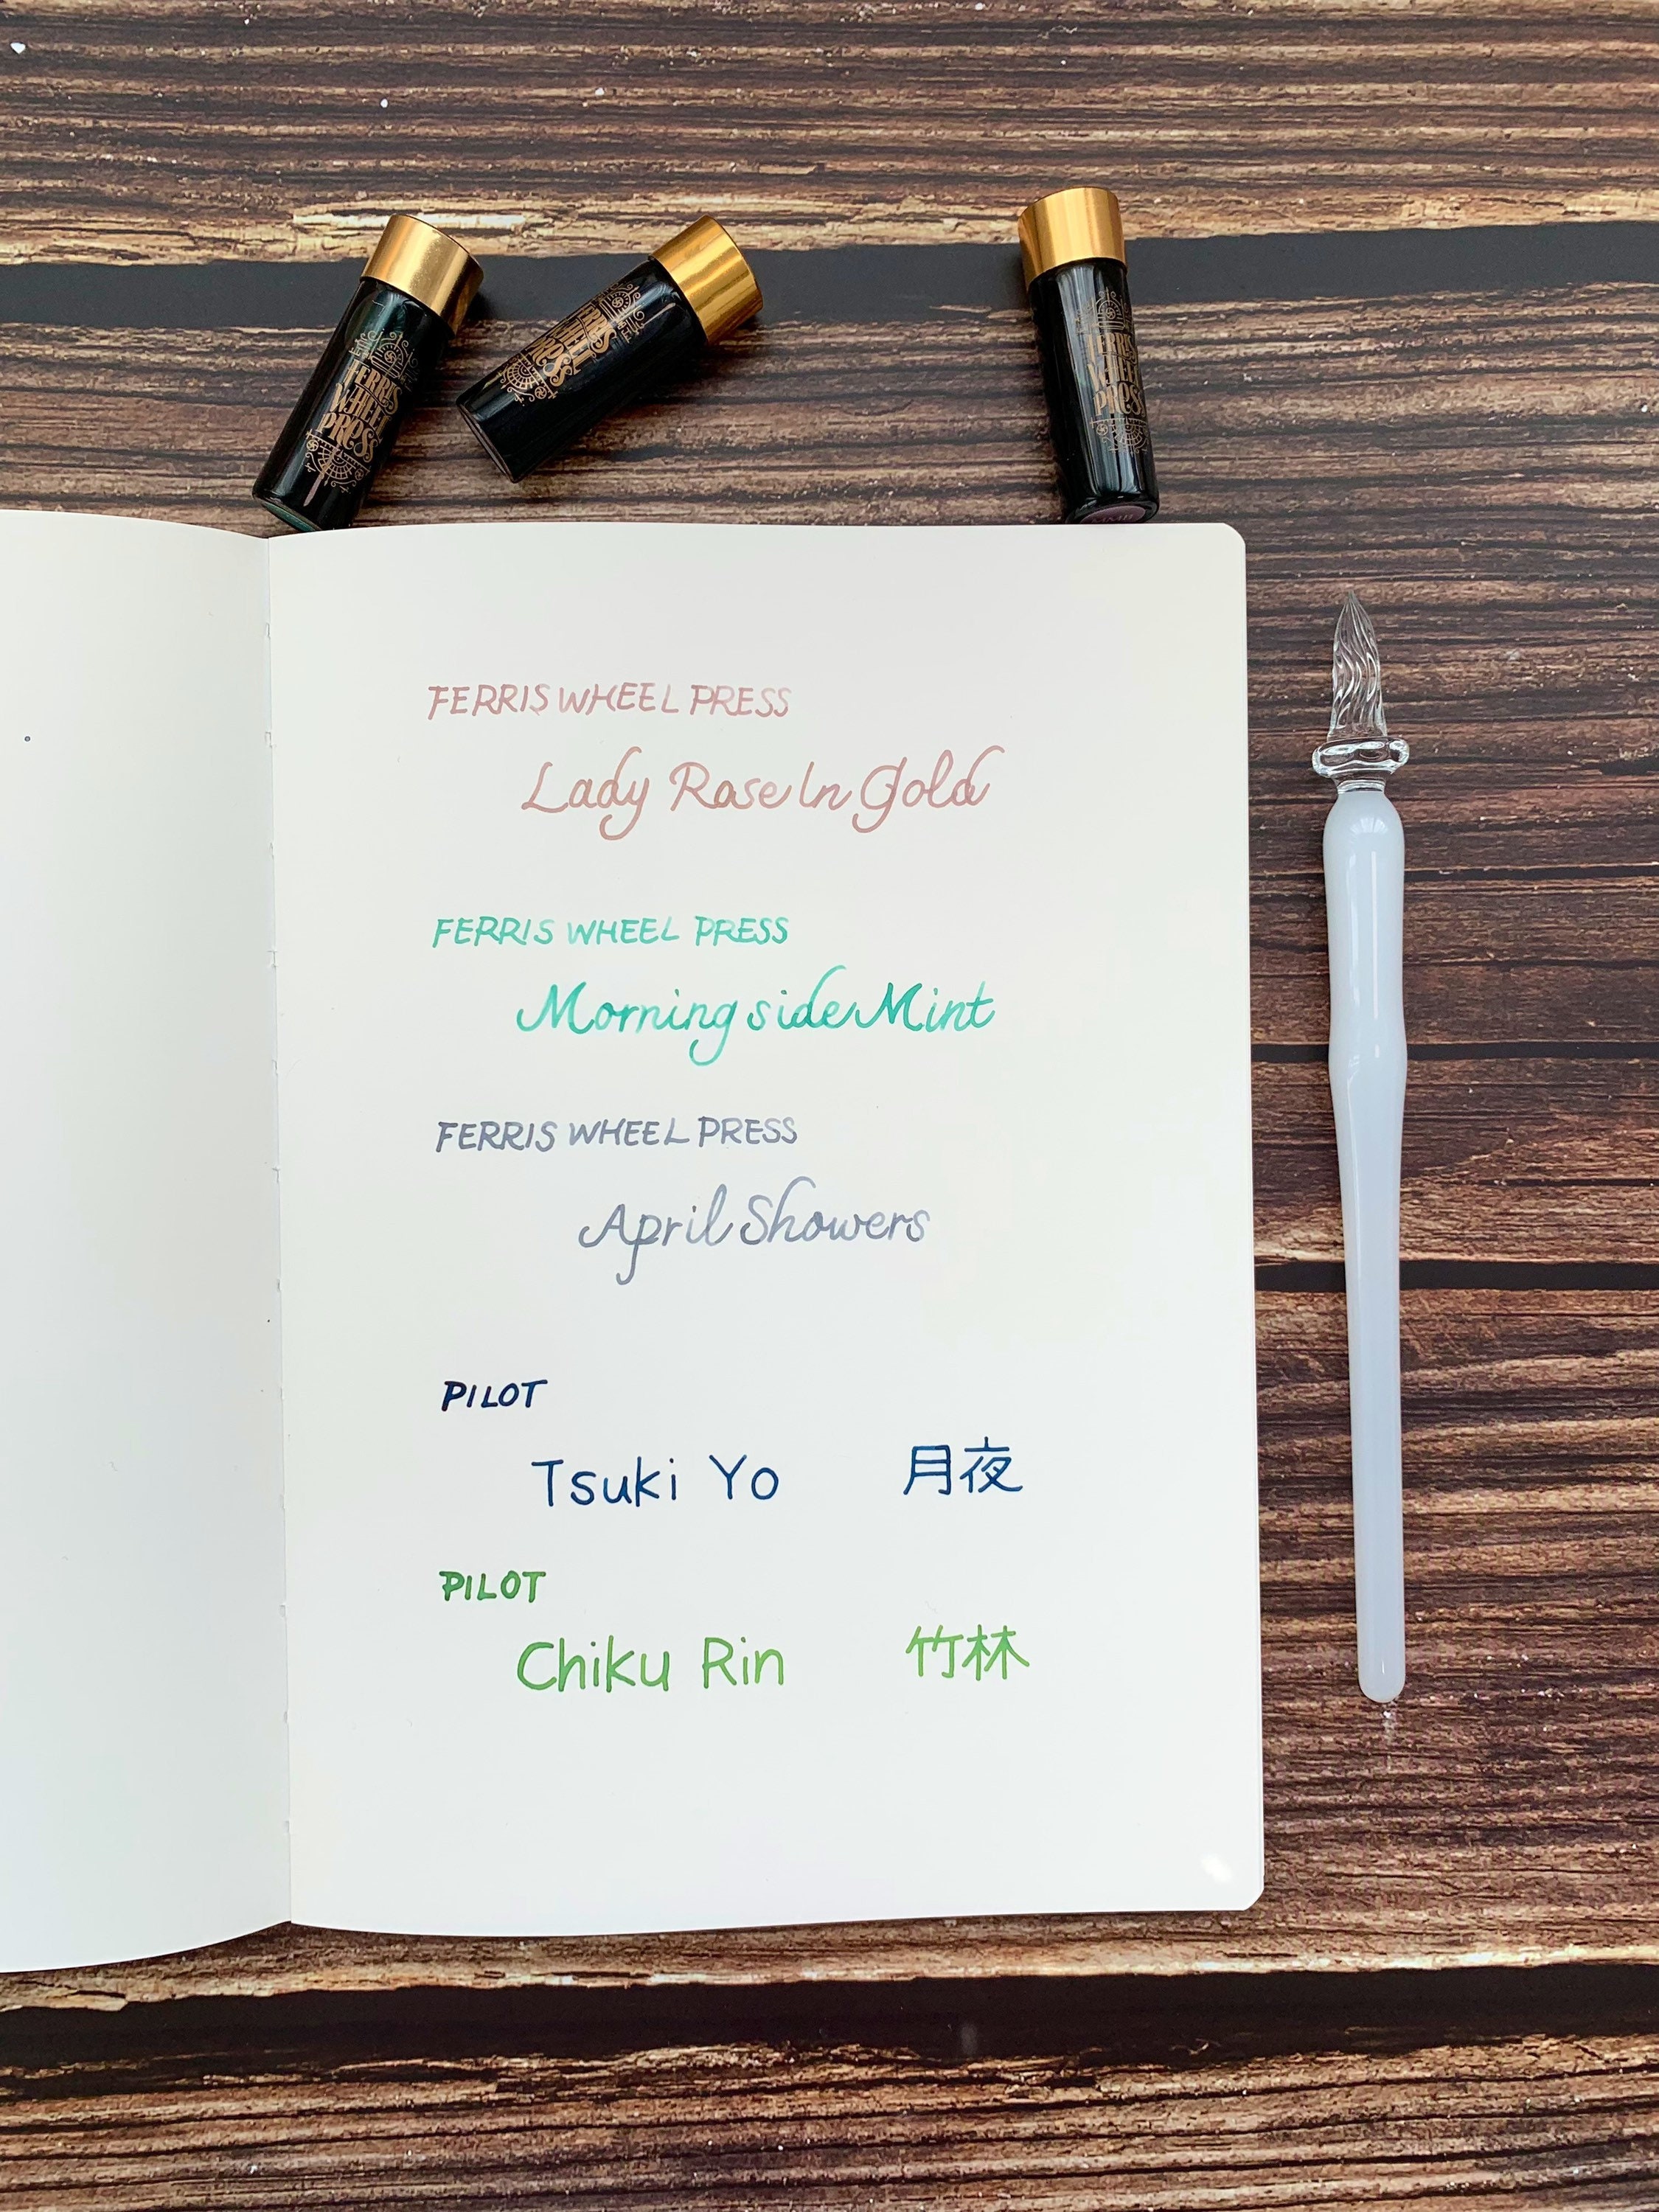 FERRIS
WHEEL
PRESS
FERRIS
WHEEL
PRESS
FERRIS
WHEEL
PRESS
FERRIS WHEEL PRESS
Lady Rose In Gold
FERRIS WHEEL PRESS
Morningside Mint
FERRIS WHEEL PRESS
April Showers
PILOT
Tsuki Yo 月夜
PILOT
Chiku Rin 竹林